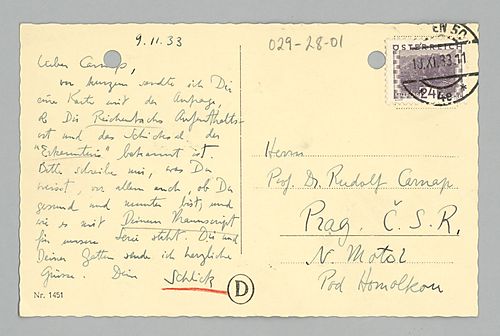 9.11.33
029-28-01
Lieber Carnap,
vor kurzem sandte ich Dir
eine Karte mit der Anfrage,
ob Dir Reichenbachs Aufenthalts-
ort und das Schicksal der
"Erkenntnis" bekannt ist.
Bitte schreibe mir, was Du
weisst, vor allem auch, ob Du
gesund und munter bist, und
wie es mit Deinem Manuscript
für unsere Serie steht. Dir und
Deiner Gattin sende ich herzliche
Grüsse. Dein Schlick
Nr. 1451
D
ÖSTERREICH
EN 50
10.XI.33
24
Herrn
Prof. Dr. Rudolf Carnap
Prag, Č.S.R.
N. Motol
Pod Homolkou